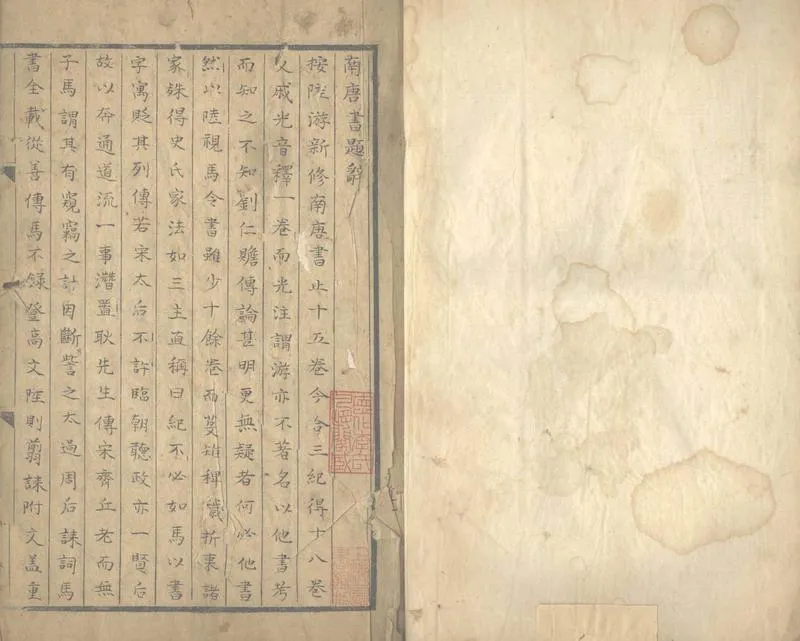 南唐書題辭
按陸游新修南唐書止十五卷今合三紀得十八卷
又戚光音釋一卷而光注謂游亦不著名以他書考
而知之不知劉仁贍傳論甚明更無疑者何必他書
然以陸視馬令書雖少十餘卷而芟雉稗薉折衷諸
家殊得史氏家法如三主直稱曰紀不必如馬以書
字寓貶其列傳若宋太后不許臨朝聽政亦一賢后
故以存通道流一事潛置耿先生傳宋齊丘老而無
子馬謂其有窺竊之計因斷訾之太過周后誄詞馬
書全載從善傳馬不錄登高文陸則翦誄附文蓋重